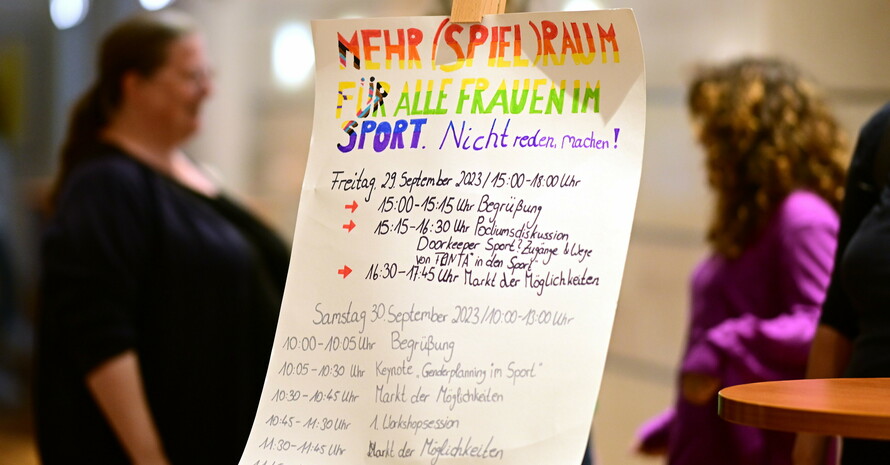 MEHR (SPIEL)RAUM
FÜR ALLE FRAUEN IM
SPORT. Nicht reden, machen!
Freitag, 29. September 2023 / 15:00-18:00 Uhr
→ 15:00-15:15 Uhr Begrüßung
→ 15:15-16:30 Uhr Podiumsdiskussion
Doorkeeper Sport? Zugänge & Wege
von TINTA* in den Sport
→ 16:30-17:45 Uhr Markt der Möglichkeiten
Samstag 30 September 2023 / 10:00-13:00 Uhr
10:00-10:05 Uhr Begrüßung
10:05-10:30 Uhr Keynote "Genderplanning im Sport"
10:30-10:45 Uhr Markt der Möglichkeiten
10:45-11:30 Uhr 1. Workshopsession
11:30-11:45 Uhr Markt der Möglichkeiten